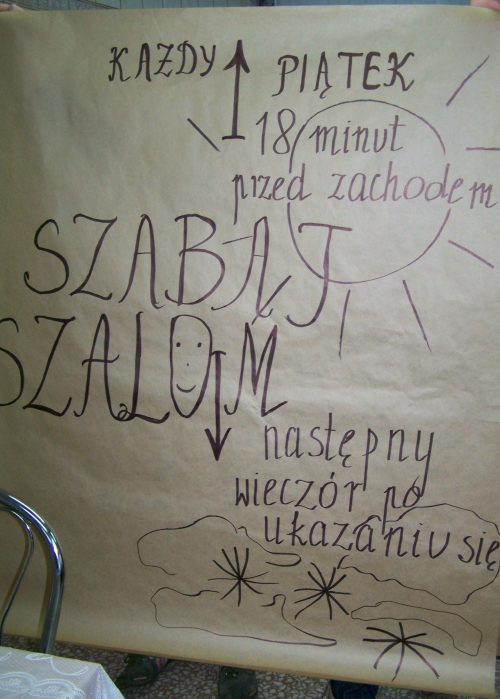 KAŻDY PIĄTEK
18 minut
przed zachodem
SZABAT
SZALOM
następny
wieczór po
ukazaniu się